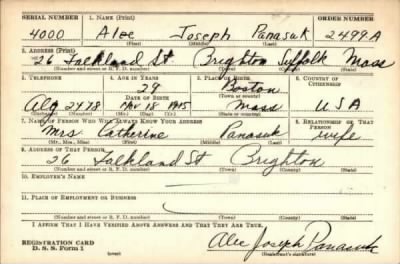 SERIAL NUMBER 1. NAME (Print) ORDER NUMBER
4000 Alec Joseph Panasuk 2499A
(First) (Middle) (Last)
2. ADDRESS (Print)
26 Falkland St. Brighton Suffolk Mass
(Number and street or R. F. D. number) (Town) (County) (State)
3. TELEPHONE 4. AGE IN YEARS 5. PLACE OF BIRTH 6. COUNTRY OF CITIZENSHIP
29 Boston
DATE OF BIRTH (Town or county)
Alg 2478 Mar 18 1915 Mass USA
(Exchange) (Number) (Mo.) (Day) (Yr.) (State or country)
7. NAME OF PERSON WHO WILL ALWAYS KNOW YOUR ADDRESS 8. RELATIONSHIP OF THAT PERSON
Mrs Catherine Panasuk wife
(Mr., Mrs., Miss) (First) (Middle) (Last)
9. ADDRESS OF THAT PERSON
26 Falkland St Brighton
(Number and street or R. F. D. number) (Town) (County) (State)
10. EMPLOYER'S NAME
11. PLACE OF EMPLOYMENT OR BUSINESS
(Number and street or R. F. D. number) (Town) (County) (State)
I AFFIRM THAT I HAVE VERIFIED ABOVE ANSWERS AND THAT THEY ARE TRUE.
REGISTRATION CARD
D. S. S. Form 1
Alec Joseph Panasuk
(Registrant's signature)